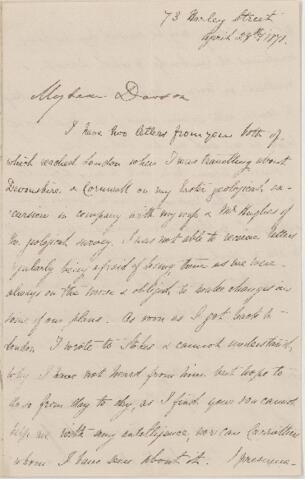 73 Harley Street
April 29th, 1871.
My dear Dawson
I have two letters from you both of
which reached London when I was travelling about
Devonshire & Cornwall on my Easter geological ex-
cursion in company with my wife & Mr Hughes of
the geological survey. I was not able to receive letters
regularly being afraid of losing time as we were
always on the move & obliged to make changes in
some of our plans. As soon as I got back to
London I wrote to Stokes & cannot understand
why I have not heard from him but hope to
do so from day to day, as I find your son cannot
help me with any intelligence, nor can Carruthers
whom I have seen about it. I presume